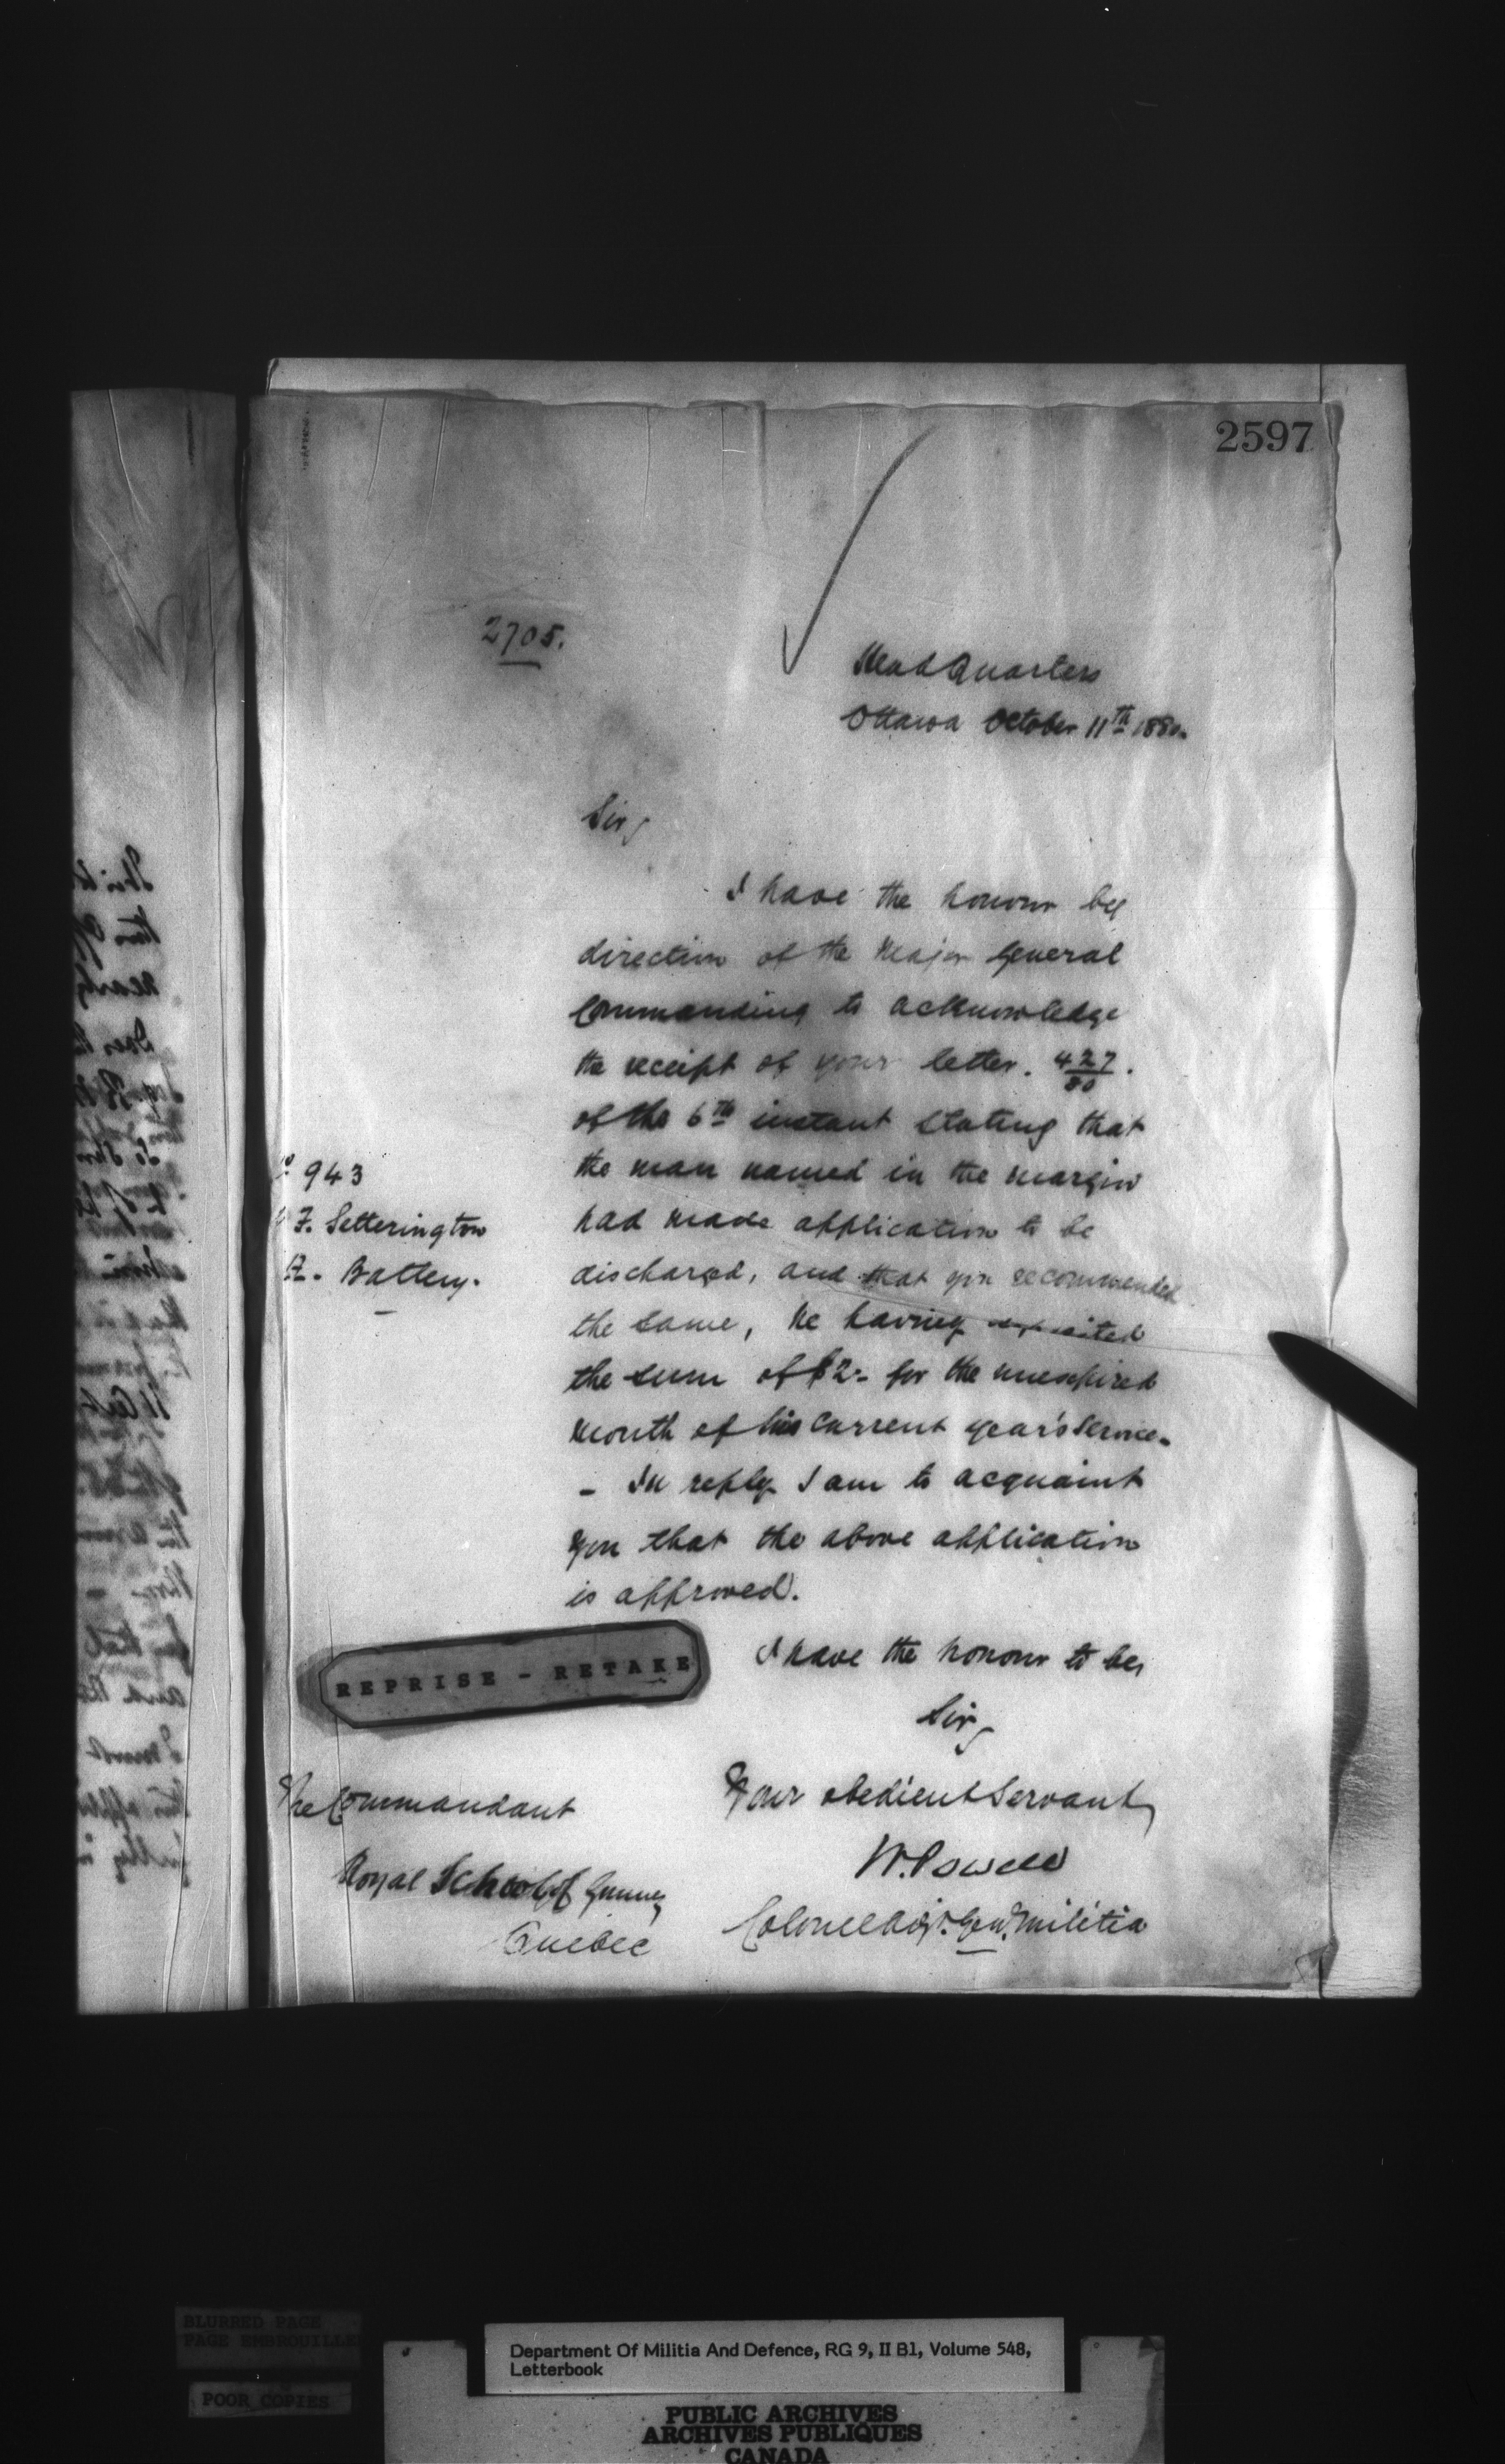 2597
2705.
Head Quarters
Ottawa October 11th 1880.
Sir,
I have the honour by
direction of the Major General
Commanding to acknowledge
the receipt of your letter. 427/80.
of the 6th instant stating that
the man named in the margin
had made application to be
discharged, and that you recommended
the same, he having deposited
the sum of $2- for the unexpired
month of his current year's service.
- In reply I am to acquaint
you that the above application
is approved.
943
F. Setterington
Battery.
I have the honour to be,
Sir,
Your obedient Servant,
W. Powell
Colonel Adjt. Genl. Militia
REPRISE - RETAKE
The Commandant
Royal School of Gunney
Quebec
BLURRED PAGE
PAGE EMBROUILLE
POOR COPIES
Department Of Militia And Defence, RG 9, II B1, Volume 548,
Letterbook
PUBLIC ARCHIVES
ARCHIVES PUBLIQUES
CANADA